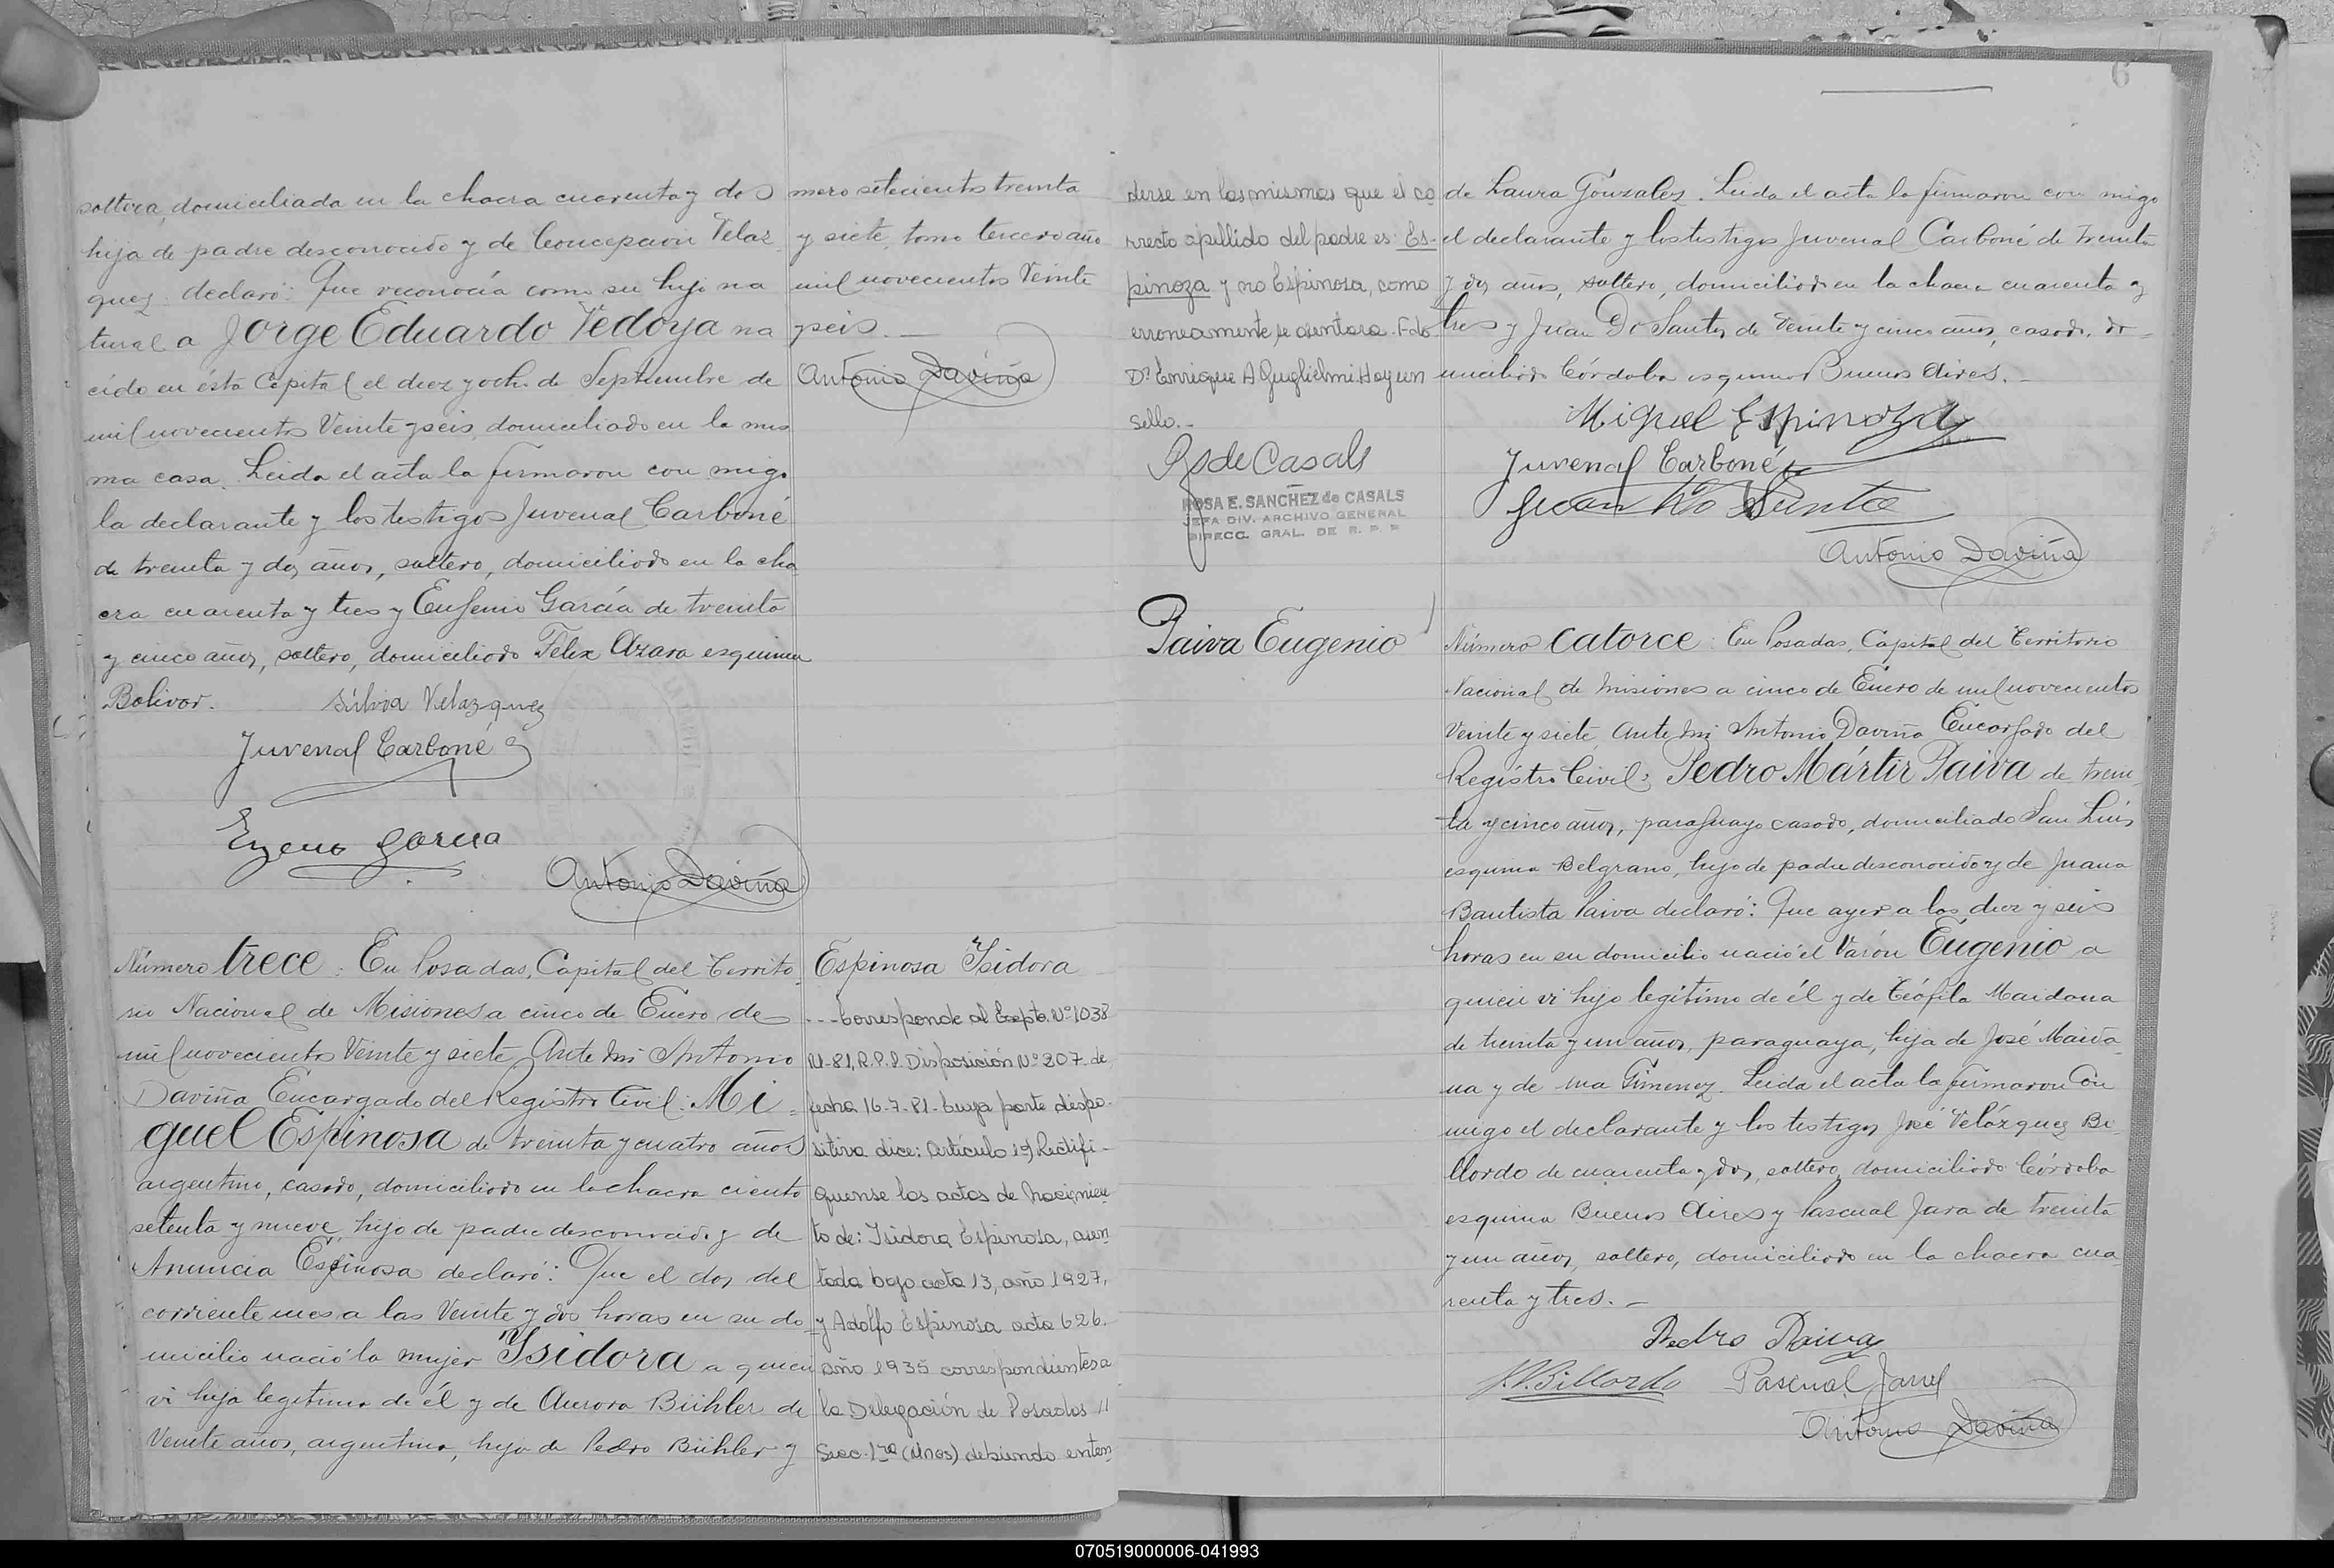 soltera, domiciliada en la chacra cuarenta y dos
hija de padre desconocido y de Concepción Velaz
quez declaró: Que reconocía como su hijo na
tural a Jorge Eduardo Vedoya na
cido en ésta Capital el diez y ocho de Septiembre de
mil novecientos Veinte y seis, domiciliado en la mis
ma casa. Leida el acta la firmaron con migo
la declarante y los testigos Juvenal Carboné
de treinta y dos años, soltero, domiciliado en la cha
cra cuarenta y tres y Eugenio García de treinta
y cinco años, soltero, domiciliado Felix Azara esquina
Bolivar.
Silvia Velazquez
Juvenal Carboné
Eugenio Garcia
Antonio Daviña
mero setecientos treinta
y siete, tomo tercero año
mil novecientos Veinte
y seis. —
Antonio Daviña
Número trece: En Posadas, Capital del Territo
rio Nacional de Misiones a cinco de Enero de
mil novecientos Veinte y siete, Ante Mi Antonio
Daviña Encargado del Registro Civil: Mi-
guel Espinosa de treinta y cuatro años
argentino, casado, domiciliado en la chacra ciento
setenta y nueve, hijo de padre desconocido y de
Anuncia Espinosa declaró: Que el dos del
corriente mes a las Veinte y dos horas en su do-
micilio nació la mujer Ysidora a quien
vi hija legítima de él y de Aurora Bühler de
Veinte años, argentina, hija de Pedro Bühler y
Espinosa Ysidora
---Corresponde al Expte. Nº 1038
M-81, R.P.P. Disposición Nº 207 de
fecha 16-7-81- Cuya parte dispo-
sitiva dice: Artículo 1º) Rectifi-
quense las actas de Nacimien
to de: Isidora Espinosa, asen
tada bajo acta 13, año 1927,
y Adolfo Espinosa acta 626.
año 1935 correspondientes a
la Delegación de Posadas
Secc. 1ra (Mnes) debiendo enten
6
derse en las mismas que el co
rrecto apellido del padre es: Es-
pinoza y no Espinosa, como
erroneamente se asentara. Fdo
Dr Enrique A Guglielmi. Hay un
sello.-
RSdeCasals
ROSA E. SANCHEZ de CASALS
JEFA DIV. ARCHIVO GENERAL
DIRECC. GRAL. DE R. P. P
de Laura Gonzalez. Leida el acta la firmaron con migo
el declarante y los testigos Juvenal Carboné de treinta
y dos años, soltero, domiciliado en la chacra cuarenta y
tres y Juan Do Santos de Veinte y cinco años, casado, do-
miciliado Córdoba esquina Buenos Aires. -
Miguel Espinoza
Juvenal Carboné
Juan Do Santo
Antonio Daviña
Paiva Eugenio
Número catorce: En Posadas, Capital del Territorio
Nacional de Misiones a cinco de Enero de mil novecientos
Veinte y siete, Ante Mi Antonio Daviña Encargado del
Registro Civil: Pedro Mártir Paiva de trein-
ta y cinco años, paraguayo casado, domiciliado San Luis
esquina Belgrano, hijo de padre desconocido y de Juana
Bautista Paiva declaró: Que ayer a las diez y seis
horas en su domicilio nació el Varón Eugenio a
quien vi hijo legítimo de él y de Teófila Maidana
de treinta y un años, paraguaya, hija de José Maida-
na y de Gimenez. Leida el acta la firmaron con
migo el declarante y los testigos José Velázquez Bi-
llordo de cuarenta y dos, soltero, domiciliado Córdoba
esquina Buenos Aires y Pascual Jara de treinta
y un años, soltero, domiciliado en la chacra cua
renta y tres. -
Pedro Paiva
J.V. Billordo
Pascual Jara
Antonio Daviña
070519000006-041993